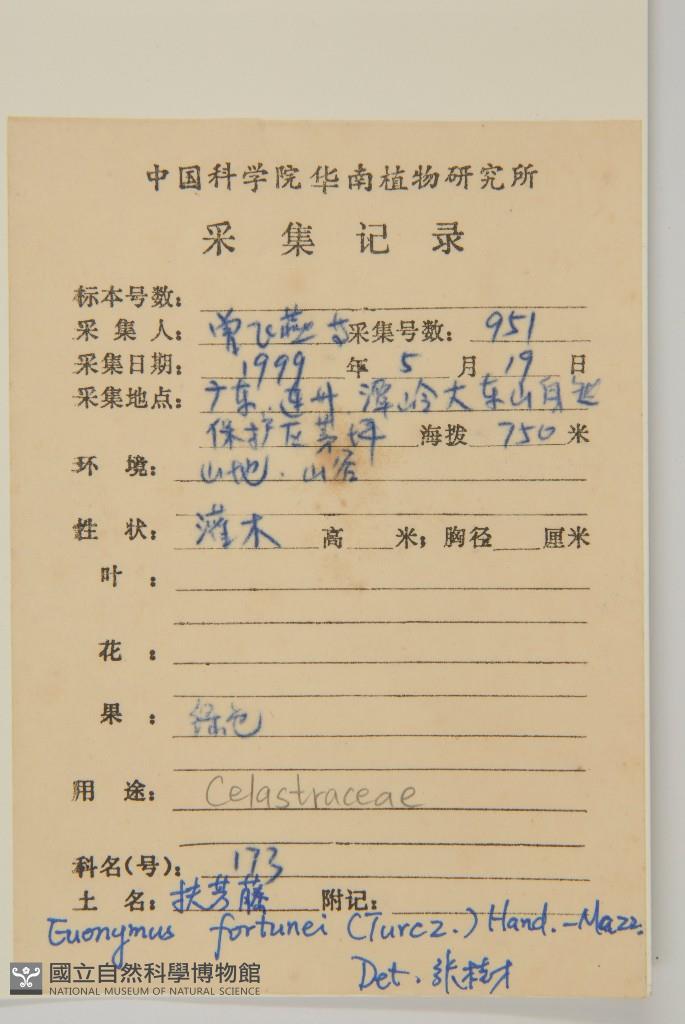 中国科学院华南植物研究所
采集记录
标本号数：
采集人：曾飞燕等采集号数：951
采集日期：1999年5月19日
采集地点：广东.连州.潭岭大东山自然
保护区茅坪 海拨 750米
环境：山地.山谷
性状：灌木 高 米；胸径 厘米
叶：
花：
果：绿色
用途：Celastraceae
科名(号)：173
土名：扶芳藤 附记：
Euonymus fortunei (Turcz.) Hand.-Mazz.
Det. 张桂才
國立自然科學博物館
NATIONAL MUSEUM OF NATURAL SCIENCE